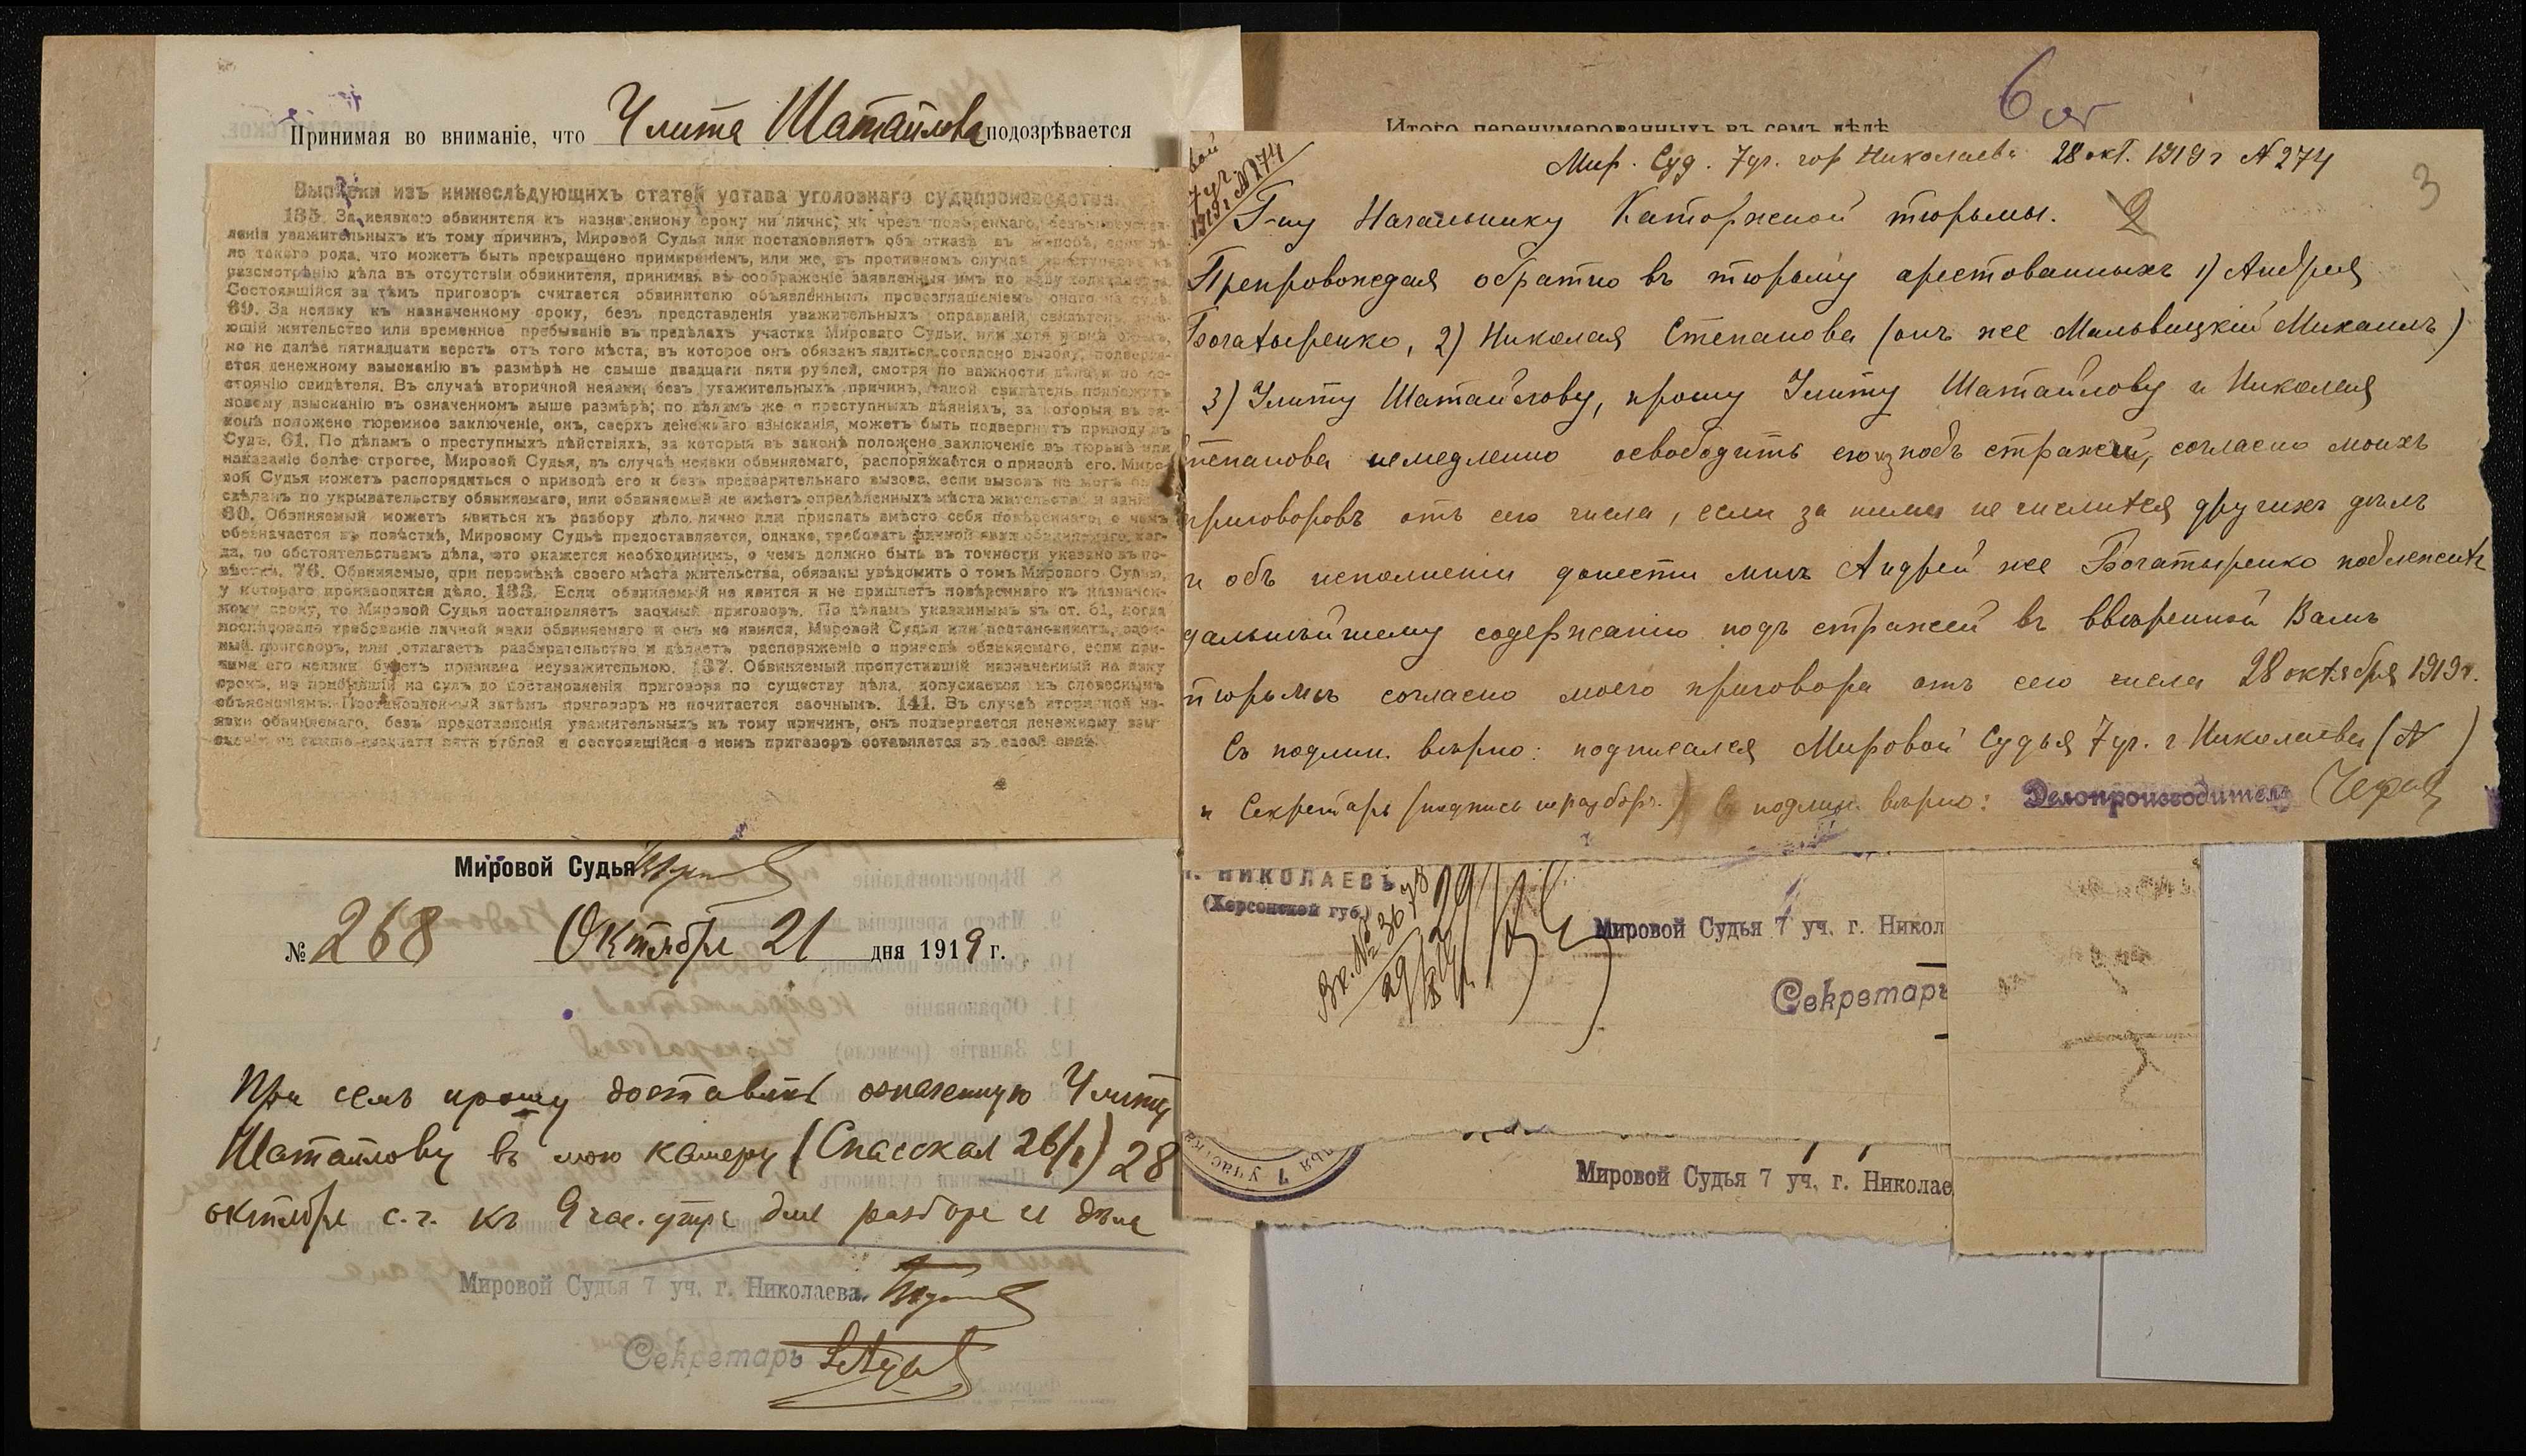 Принимая во вниманіе, что Улита Шатайлова подозрѣвается
Выписки изъ нижеслѣдующихъ статей устава уголовнаго судопроизводства.
135. За неявкою обвинителя къ назначенному сроку ни лично, ни чрезъ повѣреннаго, безъ
ленія уважительныхъ къ тому причинъ, Мировой Судья или постановляетъ объ отказѣ въ жалобѣ, если дѣ-
ло такого рода, что можетъ быть прекращено примиреніемъ, или же, въ противномъ случаѣ приступаетъ къ
разсмотрѣнію дѣла въ отсутствіи обвинителя, принимая въ соображеніе заявленныя имъ по дѣлу
Состоявшійся за тѣмъ приговоръ считается обвинителю объявленнымъ провозглашеніемъ онаго на судѣ.
69. За неявку къ назначенному сроку, безъ представленія уважительныхъ оправданій, свидѣтель, имѣ-
ющій жительство или временное пребываніе въ предѣлахъ участка Мироваго Судьи, или хотя
но не далѣе пятнадцати верстъ отъ того мѣста, въ которое онъ обязанъ явиться согласно вызову, подверга-
ется денежному взысканію въ размѣрѣ не свыше двадцати пяти рублей, смотря по важности дѣла и по со-
стоянію свидѣтеля. Въ случаѣ вторичной неявки, безъ уважительныхъ причинъ, такой свидѣтель подлежитъ
новому взысканію въ означенномъ выше размѣрѣ; по дѣламъ же о преступныхъ дѣяніяхъ, за которыя въ за-
конѣ положено тюремное заключеніе, онъ, сверхъ денежнаго взысканія, можетъ быть подвергнутъ приводу въ
Судъ. 61. По дѣламъ о преступныхъ дѣйствіяхъ, за который въ законѣ положено заключеніе въ тюрьмѣ или
наказаніе болѣе строгое, Мировой Судья, въ случаѣ неявки обвиняемаго, распоряжается о приводѣ его. Миро-
вой Судья можетъ распорядиться о приводѣ его и безъ предварительнаго вызова, если вызовъ не могъ быть
сдѣланъ по укрывательству обвиняемаго, или обвиняемый не имѣетъ опредѣленныхъ мѣста жительства и
60. Обвиняемый можетъ явиться къ разбору дѣло лично или прислать вмѣсто себя повѣреннаго, о чемъ
обозначается въ повѣсткѣ, Мировому Судьѣ предоставляется, однако, требовать личной явки обвиняемаго, ког-
да, по обстоятельствамъ дѣла, это окажется необходимымъ, о чемъ должно быть въ точности указано въ по-
вѣсткѣ. 76. Обвиняемые, при перемѣнѣ своего мѣста жительства, обязаны увѣдомить о томъ Мирового Судью,
у котораго производится дѣло. 133. Если обвиняемый не явится и не пришлетъ повѣреннаго къ назначен-
ному сроку, то Мировой Судья постановляетъ заочный приговоръ. По дѣламъ указаннымъ въ ст. 61, когда
послѣдовало требованіе личной явки обвиняемаго и онъ не явился, Мировой Судья или постановляетъ, заоч-
ный приговоръ, или отлагаетъ разбирательство и дѣлаетъ распоряженіе о приводѣ обвиняемаго, если при-
чина его неявки будетъ признана неуважительною. 137. Обвиняемый пропустившій назначенный на явку
срокъ, но прибывшій на судъ до постановленія приговора по существу дѣла, допускается къ словеснымъ
объясненіямъ. Постановленный затѣмъ приговоръ не почитается заочнымъ. 141. Въ случаѣ вторичной не-
явки обвиняемаго, безъ представленія уважительныхъ къ тому причинъ, онъ подвергается денежному взы-
сканію не свыше двадцати пяти рублей и состоявшійся о немъ приговоръ оставляется въ своей силѣ.
Мировой Судья
№ 268 Октября 21 дня 1919 г.
При семъ прошу доставить означенную Улиту
Шатайлову въ мою камеру (Спасская 26/1) 28
октября с.г. къ 9 час. утра для разбора дѣла
Мировой Судья 7 уч. г. Николаева
Секретарь
Итого перенумерованныхъ въ семъ дѣлѣ
6
Мир. Суд. 7 уч. гор Николаева 28 окт. 1919 г N 274
3
2
Г-ну Начальнику Каторжной тюрьмы.
Препровождая обратно въ тюрьму арестованныхъ 1) Андрея
Богатыренко, 2) Николая Степанова (онъ же Мальвицкій Михаилъ)
3) Улиту Шатайлову, прошу Улиту Шатайлову и Николая
Степанова немедленно освободить его изподъ стражи, согласно моихъ
приговоровъ отъ сего числа, если за ними не числится другихъ дѣлъ
и объ исполненіи донести мнѣ Андрей же Богатыренко подлежитъ
дальнѣйшему содержанію подъ стражей въ ввѣренной Вамъ
тюрьмѣ согласно моего приговора отъ сего числа 28 октября 1919 г.
Съ подлин. вѣрно: подписался Мировой Судья 7 уч. г Николаева (N )
и Секретарь (подпись неразборч.) Съ подлин. вѣрно: Делопроизводитель
г. НИКОЛАЕВЪ
(Херсонской губ.)
Вх. № 3678
29/X 19 г.
Мировой Судья 7 уч. г. Никол
Секретарь
7 участка
Мировой Судья 7 уч. г. Николае